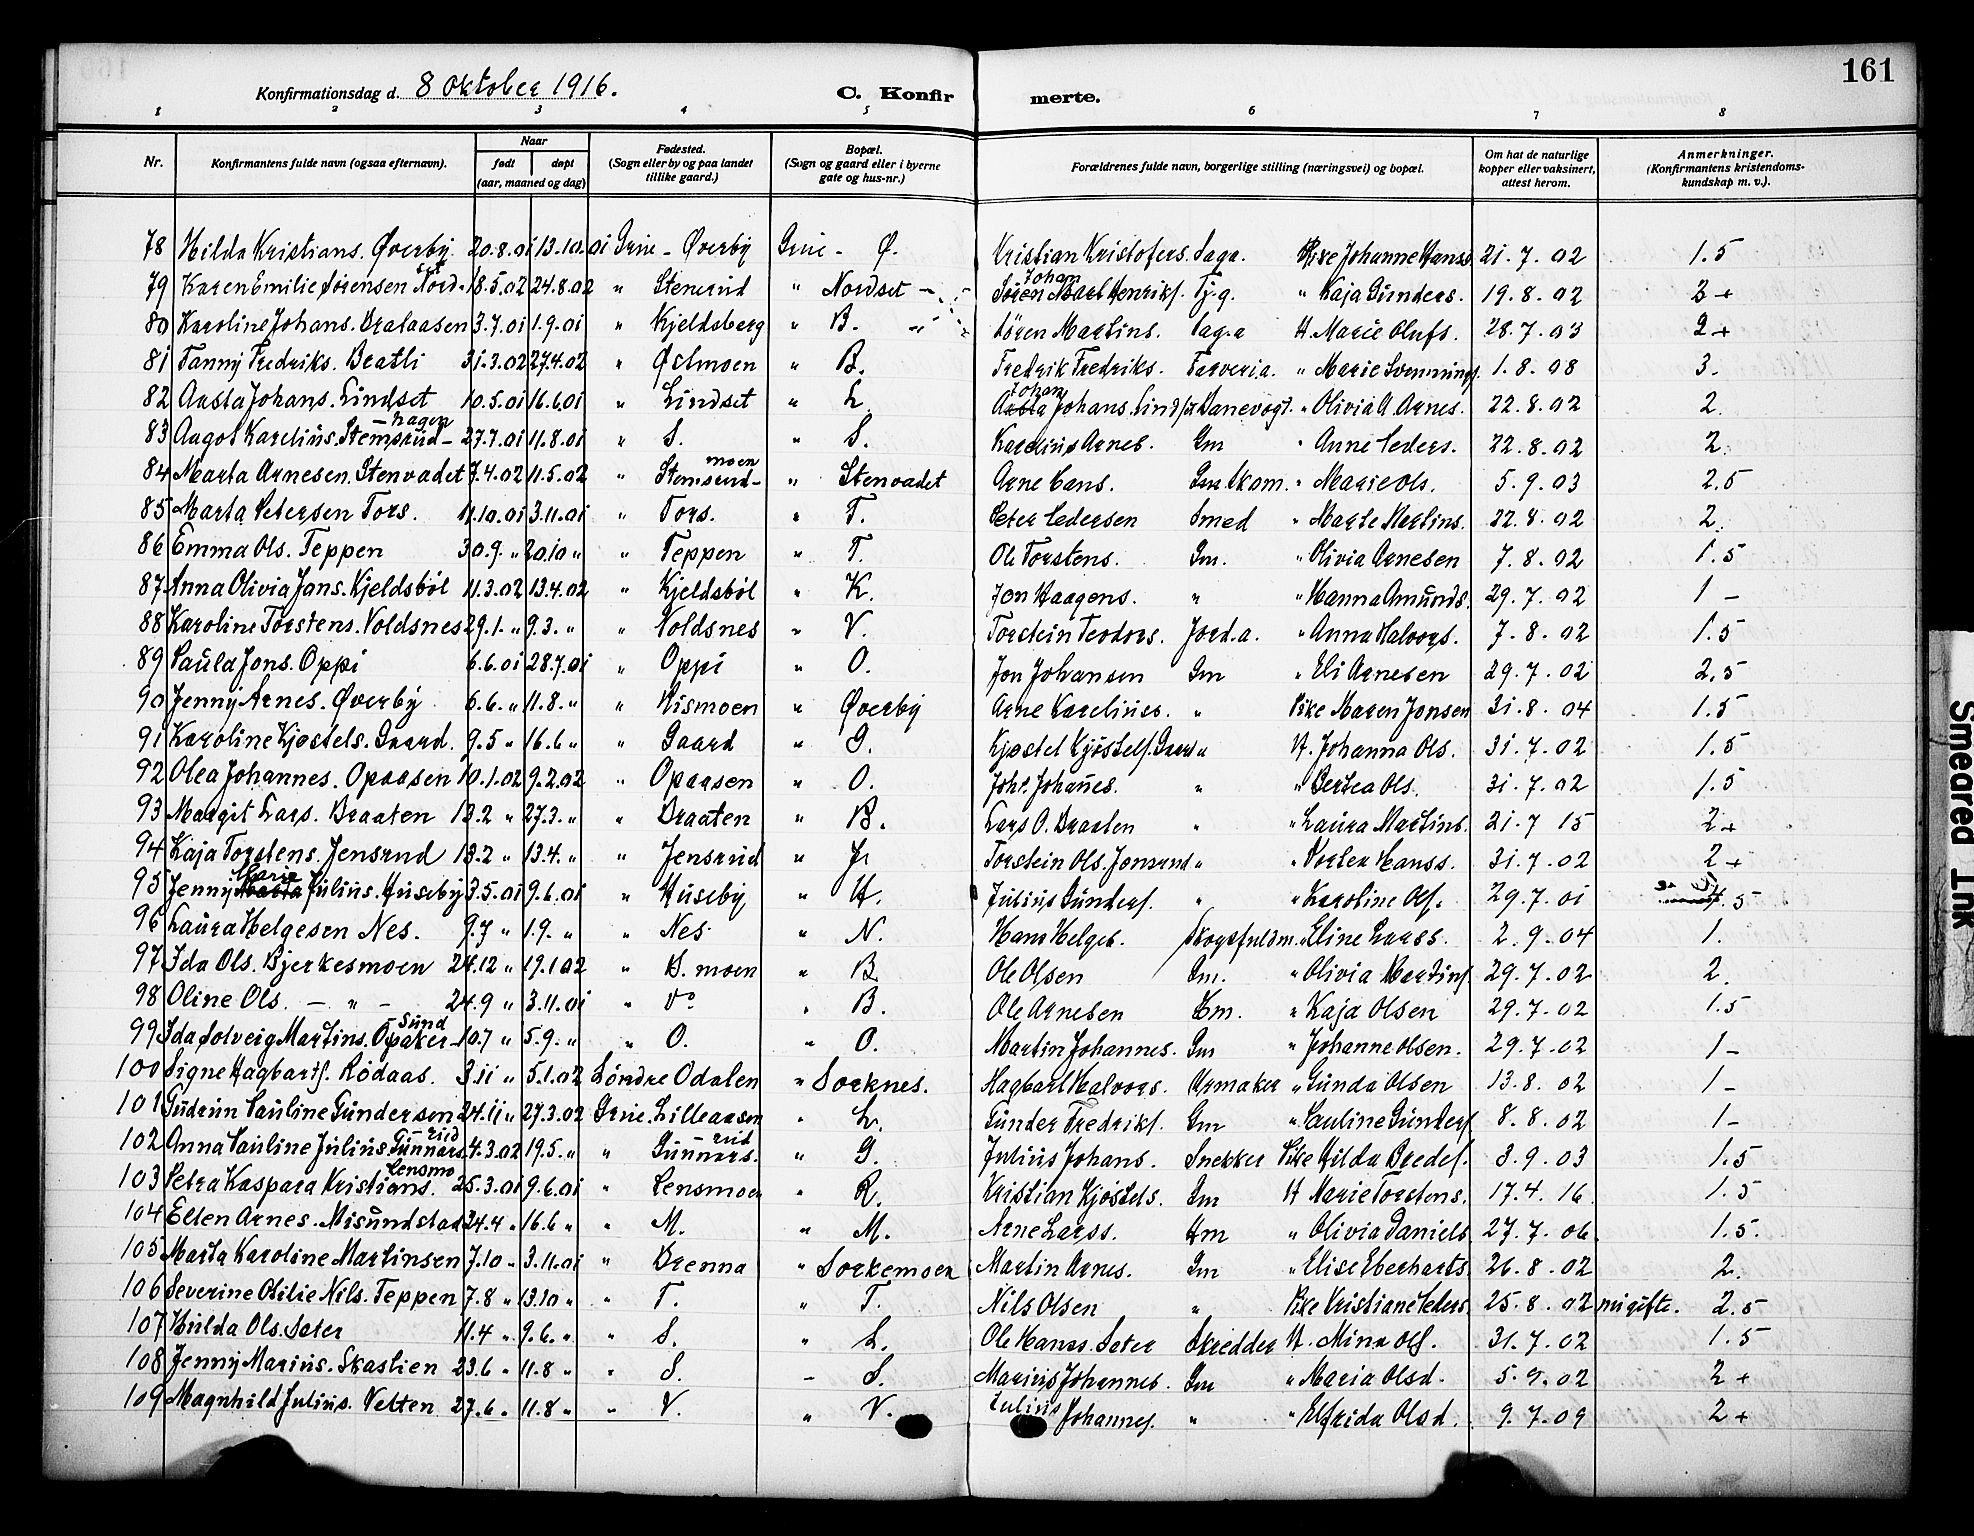 161
Konfirmationsdag d. 8 Oktober 1916. C. Konfirmerte.
1 2 3 4 5 6 7 8
Nr. Konfirmantens fulde navn (ogsaa efternavn). Naar født døpt (aar, maaned og dag) Fødested. (Sogn eller by og paa landet tillike gaard.) Bopæl. (Sogn og gaard eller i byerne gate og hus-nr.) Forældrenes fulde navn, borgerlige stilling (næringsvei) og bopæl. Om hat de naturlige kopper eller vaksinert, attest herom. Anmerkninger. (Konfirmantens kristendomskundskap m. v.).
78 Hilda Kristians. Øverby 20.8.01 13.10.01 Grue - Øverby Grue - Ø. Kristian Kristofers. Dagr. Pike Johanne Hanss 21.7.02 1.5
79 Karen Emilie Sørensen Nordset 18.5.02 24.8.02 " Stenerud " Nordset Johan Henriks. Tj.g. " Kaja Gunders. 19.8.02 2+
80 Karoline Johans. Bralaasen 3.7.01 1.9.01 " Kjeldsberg " B. Søren Martins. Dag.a H. Marie Olufs. 28.7.03 2+
81 Fanny Fredriks. Bratli 31.3.02 27.4.02 " Østmoen " B. Fredrik Fredriks. Farveria. " Marie Svennings. 1.8.08 3.
82 Aasta Johans. Lindset 10.5.01 16.6.01 " Lindset " L. Johan Johans. Lindset Banevogt. " Olivia A. Arnes. 22.8.02 2.
83 Aagot Karelius. Stemsrudhagen 27.7.01 11.8.01 " S. " S. Karelius Arnes. Gm " Anne Peders. 22.8.02 2.
84 Marta Arnesen Stenvadet 7.4.02 11.5.02 " Stemsrudmoen " Stenvadet Arne Hans. Gm.Skom. " Marie Ols. 5.9.03 2.5
85 Marta Petersen Tors. 11.10.01 3.11.01 " Tors. " T. Peter Pedersen Smed " Marte Martins. 22.8.02 2.
86 Emma Ols. Teppen 30.9. " 20.10 " " Teppen " T. Ole Torstens. Gm. " Olivia Arnesen 7.8.02 1.5
87 Anna Olivia Jons. Kjeldsbøl 11.3.02 13.4.02 " Kjeldsbøl " K. Jon Haagens. " " Hanna Amunds. 29.7.02 1 -
88 Karoline Torstens. Voldsnes 29.1. " 9.3. " " Voldsnes " V. Torstein Teodors. Jord.a. " Anna Halvors. 7.8.02 1.5
89 Paula Jons. Oppi 6.6.01 28.7.01 " Oppi " O. Jon Johansen Gm " Eli Arnesen 29.7.02 2.5
90 Jenny Arnes. Øverby 6.6. " 11.8. " " Rismoen " Øverby Arne Kareliuss. " Pike Maren Jonsen 31.8.04 1.5
91 Karoline Kjøstels. Gaard. 9.5 " 16.6 " " Gaard " G. Kjøstel Kjøstels. Gaard " H. Johanna Ols. 31.7.02 1.5
92 Olea Johannes. Opaasen 10.1.02 9.2.02 " Opaasen " O. Johs. Johannes. " " Bertea Ols. 31.7.02 1.5
93 Margit Lars. Braaten 13.2 " 27.3. " " Braaten " B. Lars O. Braaten " " Laura Martins. 21.7 15 2+
94 Kaja Torstens. Jensrud 13.2 " 13.4. " " Jensrud " J. Torstein Ols. Jensrud " " Dortea Hanss. 31.7.02 2+
95 Jenny Marie Julius. Huseby 3.5.01 9.6.01 " Huseby " H. Julius Gunders. " " Karoline Ols. 29.7.01 1.5
96 Laura Helgesen Nes. 9.7 " 1.9. " " Nes. " N. Hans Helges. Skogsfuldm. " Eline Larss. 2.9.04 1.
97 Ida Ols. Bjerkesmoen 24.12 " 19.1.02 " B. moen " B. Ole Olsen Gm. " Olivia Martins. 29.7.02 2.
98 Oline Ols. - " - 24.9 " 3.11.01 " Do " B. Ole Arnesen Hm. " Kaja Olsen 29.7.02 1.5
99 Ida Solveig Martins. Opakersund 10.7 " 5.9. " " O. " O. Martin Johannes. Gm " Johanne Olsen. 29.7.02 1-
100 Signe Hagbarts. Rødaas. 3.11 " 5.1.02 Søndre Odalen " Sorknes. Hagbart Halvors. Urmaker " Gunda Olsen 13.8.02 1-
101 Gudrun Pauline Gundersen 24.11 " 27.3.02 Grue. Lilleaasen " L. Gunder Fredriks. Gm " Pauline Gunders. 8.8.02 1-
102 Anna Pauline Julius. Gunnarsrud 4.3.02 19.5. " " Gunnarsrud " G. Julius Johans. Snekker Pike Hilda Bredes. 3.9.03 1.5
103 Petra Kaspara Kristians. Lensmo 25.3.01 9.6.01 " Lensmoen " R. Kristian Kjøstels. Gm H Marie Torstens. 17.4.16 1.5
104 Ellen Arnes. Misundstad 24.4 " 16.6 " " M. " M. Arne Larss. Hm " Olivia Daniels. 27.7.06. 1.5.
105 Marta Karoline Martinsen 7.10 " 3.11.01 " Brenna " Sorkemoen Martin Arnes. Gm " Elise Eberharts. 26.8.02 2.
106 Severine Otilie Nils. Teppen 7.8 " 13.10 " " T. " T. Nils Olsen " Pike Kristiane Peders 25.8.02 m gifte. 2.5
107 Hulda Ols. Sæter 11.4 " 9.6. " " S. " L. Ole Hanss. Sæter Skredder H. Mina Ols. 31.7.02 1.5
108 Jenny Marius. Skastien 23.6 " 11.8 " " S. - S. Marius Johannes. Gm " Maria Olsd. 5.9.02 2+
109 Magnhild Julius. Velten 27.6 " 11.8 " " V. " V. Julius Johannes. " " Elfrida Olsd. 9.7.09 2+
Smeared Ink